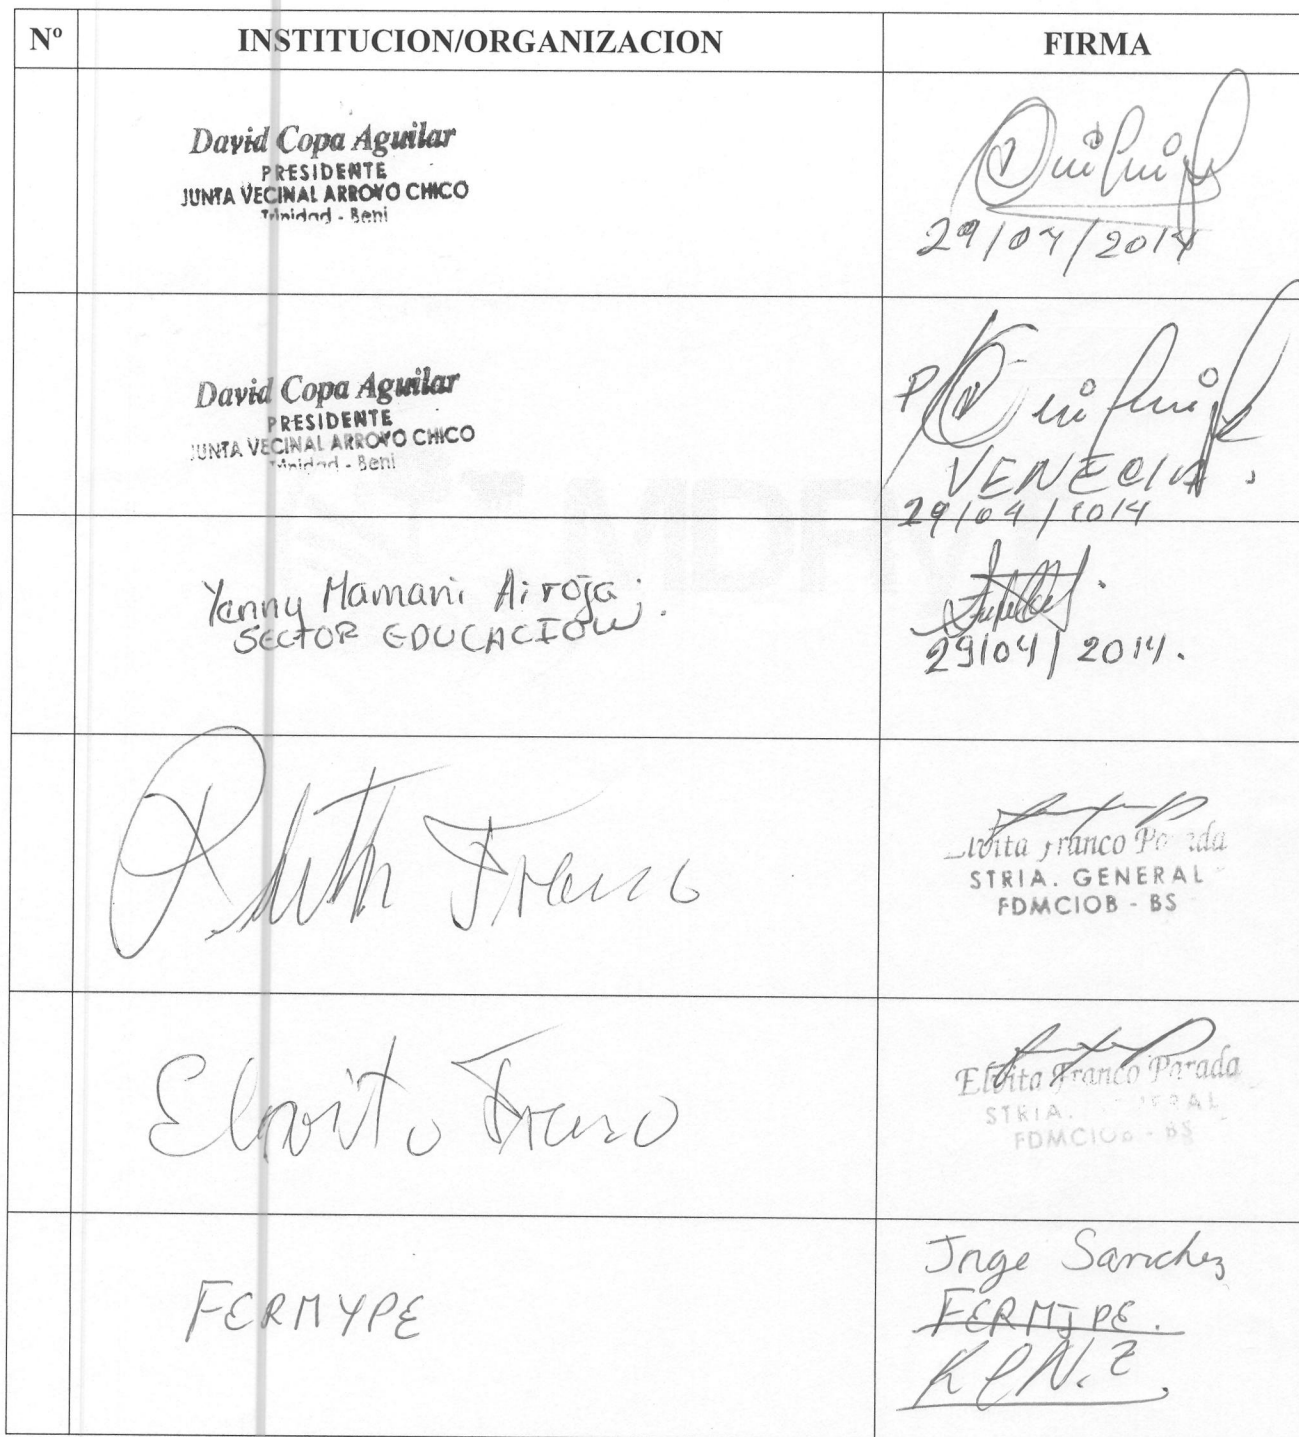 Nº INSTITUCION/ORGANIZACION FIRMA
David Copa Aguilar
PRESIDENTE
JUNTA VECINAL ARROYO CHICO
Trinidad - Beni
29/04/2014
David Copa Aguilar
PRESIDENTE
JUNTA VECINAL ARROYO CHICO
Trinidad - Beni
P/
VENECIA.
29/04/2014
Yanny Mamani Airoja.
SECTOR EDUCACION.
29/04/2014.
Ruth Franco
Elvita Franco Parada
STRIA. GENERAL
FDMCIOB - BS
Elvita Franco
Elvita Franco Parada
STRIA. GENERAL
FDMCIOB - BS
FERMYPE
Jnge Sanchez
FERMIPE.